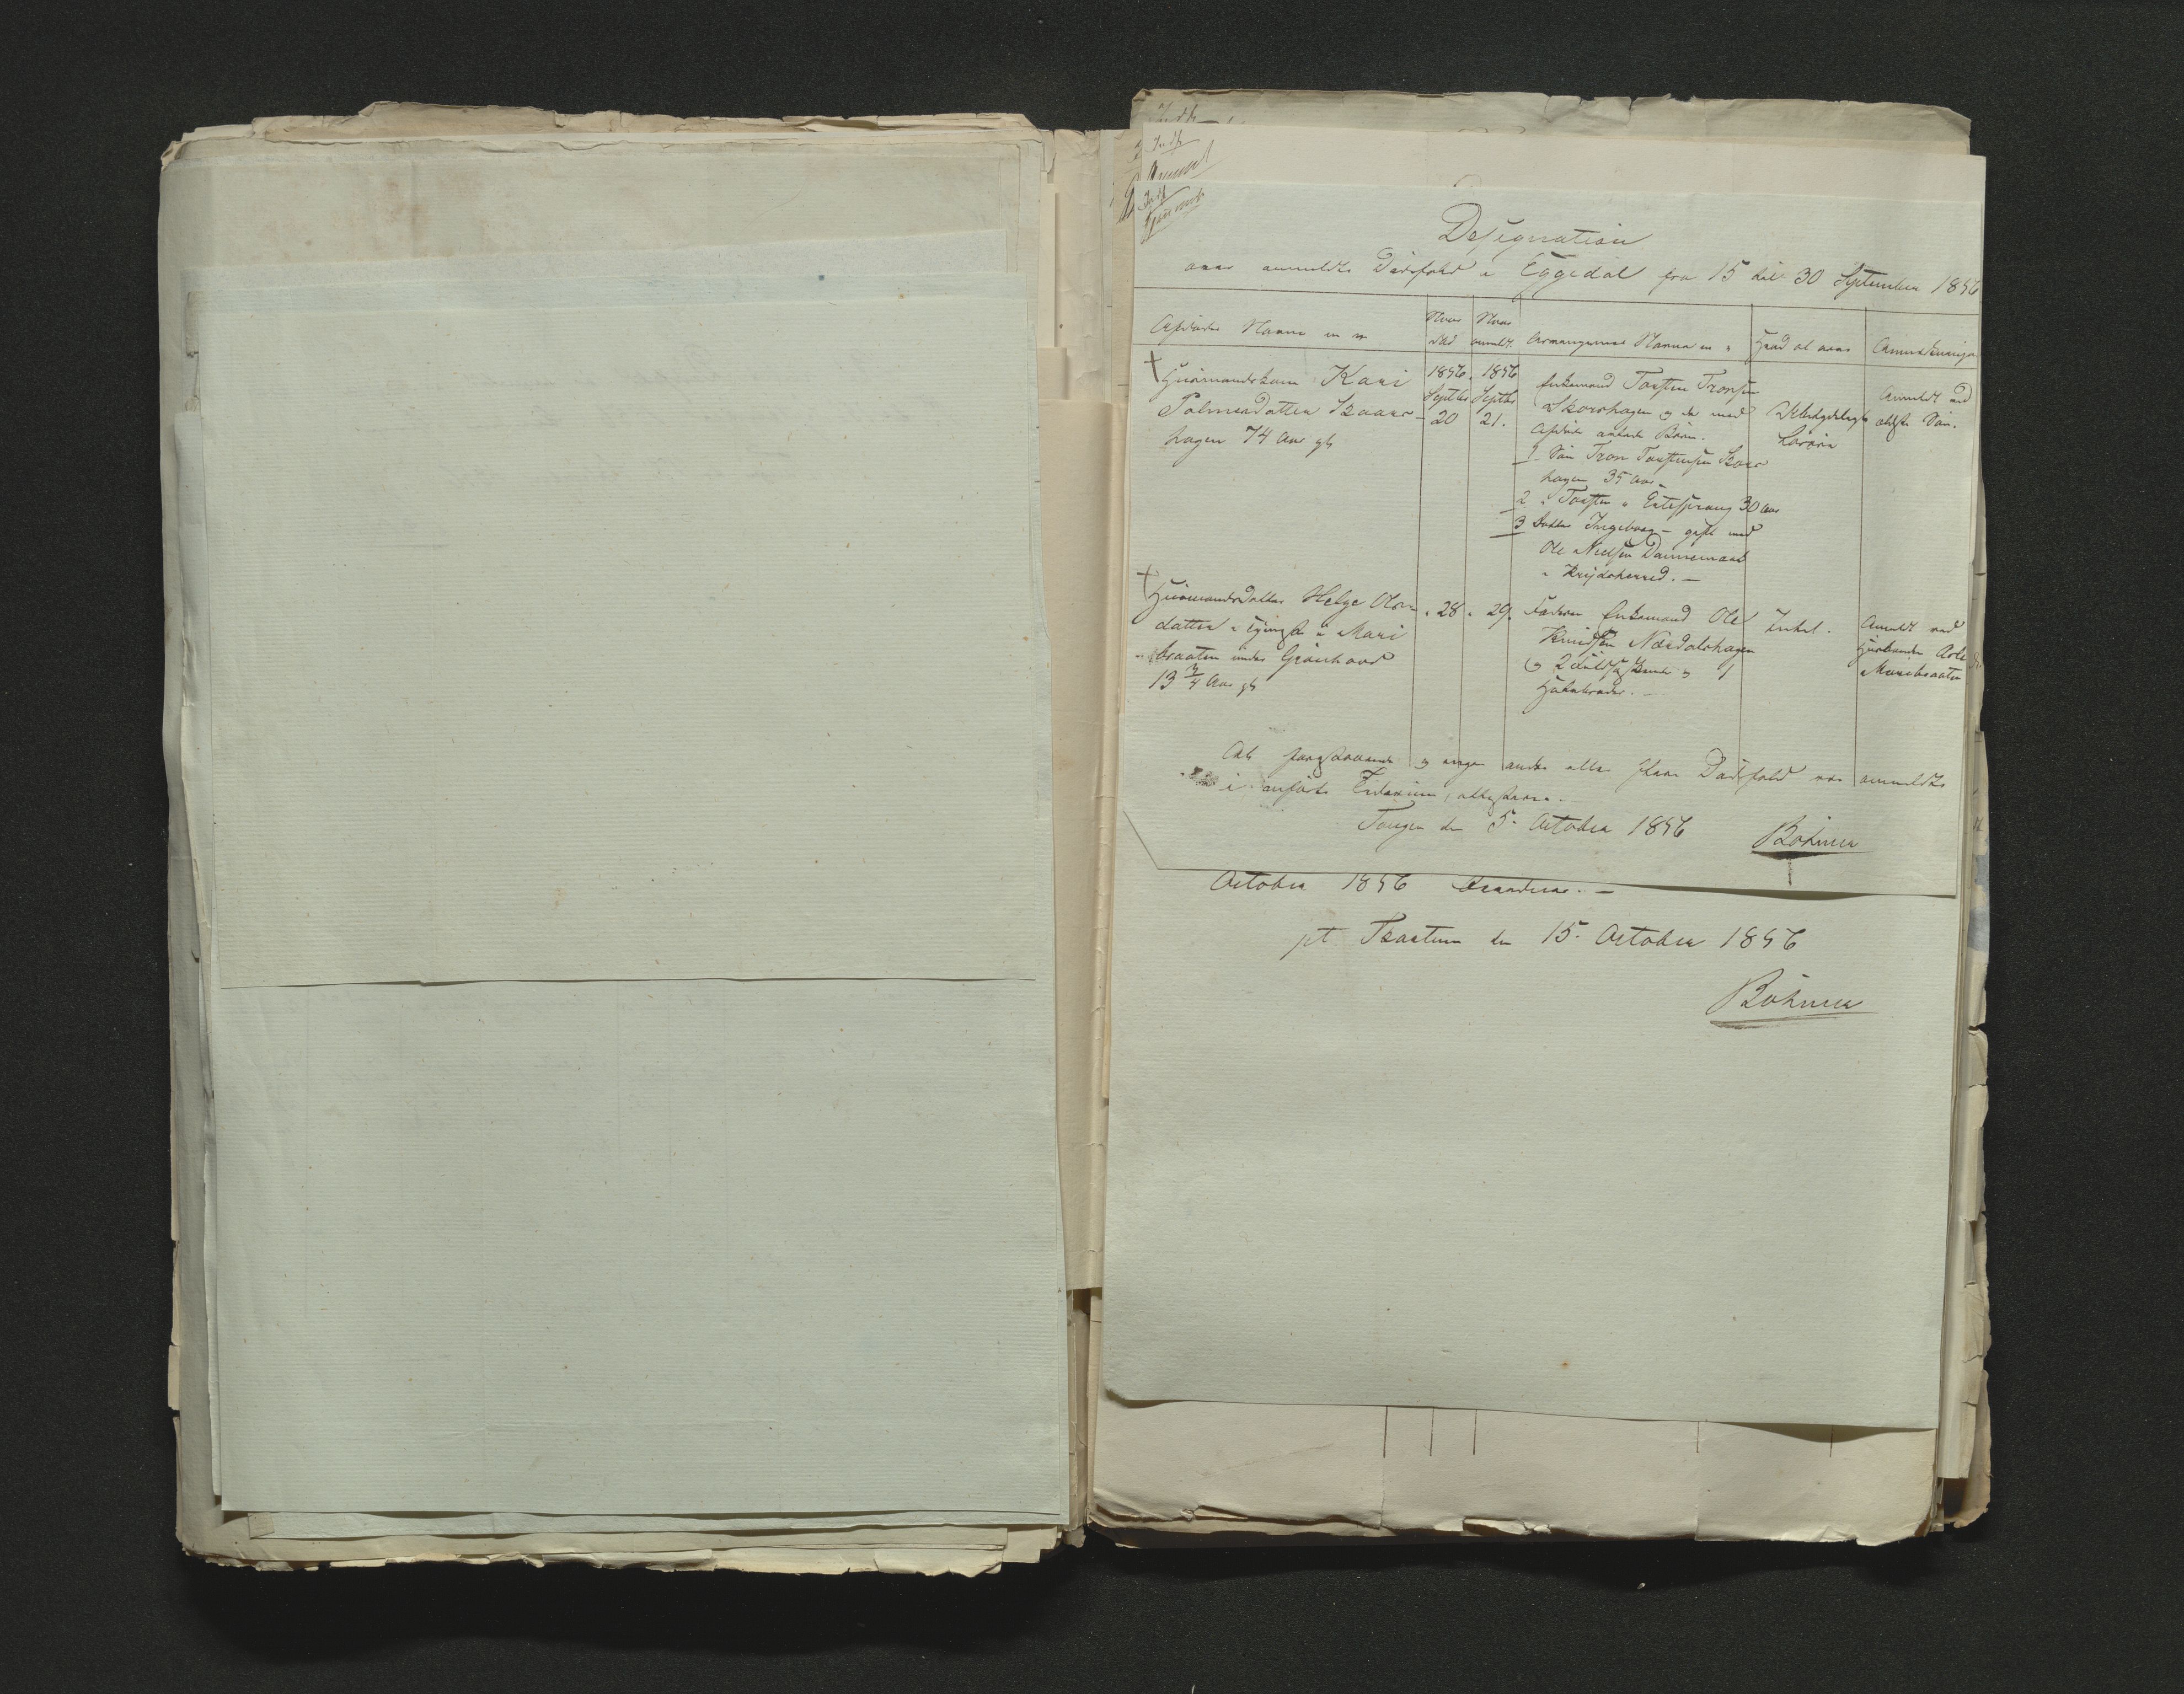 Designation
over anmeldte Dødsfald i Eggedal fra 15 til 30 September 1856
Afdødes Navne m m
Naar død
Naar anmeldt
Arvingernes Navne m m
Hvad at arve
Anmærkninger
Huusmandskone Kari
Palmesdatter Skaars-
hagen 74 Aar gl
1856.
Septbr
20
1856
Septbr
21.
Enkemand Torsten Tronsen
Skorshagen og de med
afdøde avlede Børn.
1 Søn Tron Torstensen Skors
hagen 35 Aar
2 " Torsten " Entesprang 30 Aar
3 Datter Ingeborg - gift med
Ole Nielsen
i Krydsherred. -
Anmeldt ved
ældste Søn.
Huusmandsdatter Helge Ols-
datter i Mari
braaten under Grønhovd
13 3/4 Aar gl
" 28 " 29.
Faderen Enkemand Ole
Knudsen Nordalshagen
og 2 og 1
Halvbroder. -
Intet.
Anmeldt ved
Huusbonden
Maribraaten
At foranstaaende og ingen andre eller flere Dødsfald ere anmeldte
i anførte Tidsrum, attesteres. -
den 5. October 1856
Böhmer
October 1856
pt den 15. October 1856
Böhmer